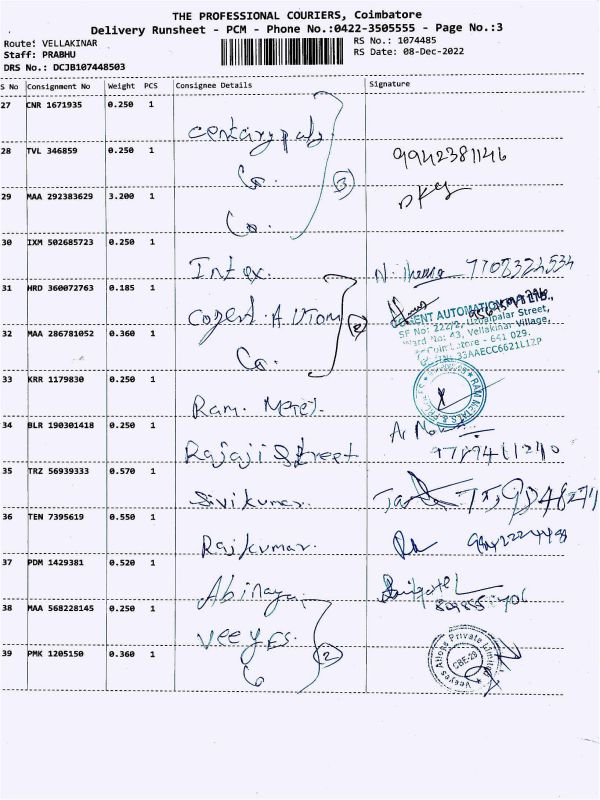 THE PROFESSIONAL COURIERS, Coimbatore
Delivery Runsheet - PCM - Phone No.:0422-3505555 - Page No.:3
Route: VELLAKINAR
RS No.: 1074485
Staff: PRABHU
RS Date: 08-Dec-2022
DRS No.: DCJB107448503
S No Consignment No Weight PCS Consignee Details Signature
27 CNR 1671935 0.250 1
28 TVL 346859 0.250 1 Co. 9942381146
29 MAA 292383629 3.200 1 Co. 3
30 IXM 502685723 0.250 1 Intex. 7708324534
31 HRD 360072763 0.185 1 Cogent AUTOM
32 MAA 286781052 0.360 1 Co. 2
COGENT AUTOMATION
SF No: 222/2, Udaipalar Street,
Ward No: 43, Vellakinar Village,
Coimbatore - 641 029.
33AAECC6621L1ZP
33 KRR 1179830 0.250 1 Ram.
RAM METALS &
34 BLR 190301418 0.250 1 Rajaji Street
35 TRZ 56939333 0.570 1 Sivikumar
36 TEN 7395619 0.550 1 Rajkumar.
37 PDM 1429381 0.520 1 Abinaya
38 MAA 568228145 0.250 1 Veeyes.
39 PMK 1205150 0.360 1 Co 2
Veeyes Alloys Private Limited
CBE-29